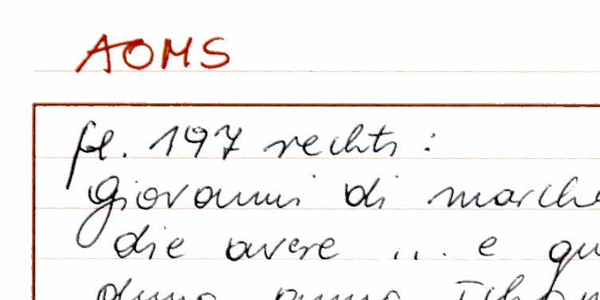 AOMS
fol. 197 rechts:
Giovanni di marche
die avere ... e qu